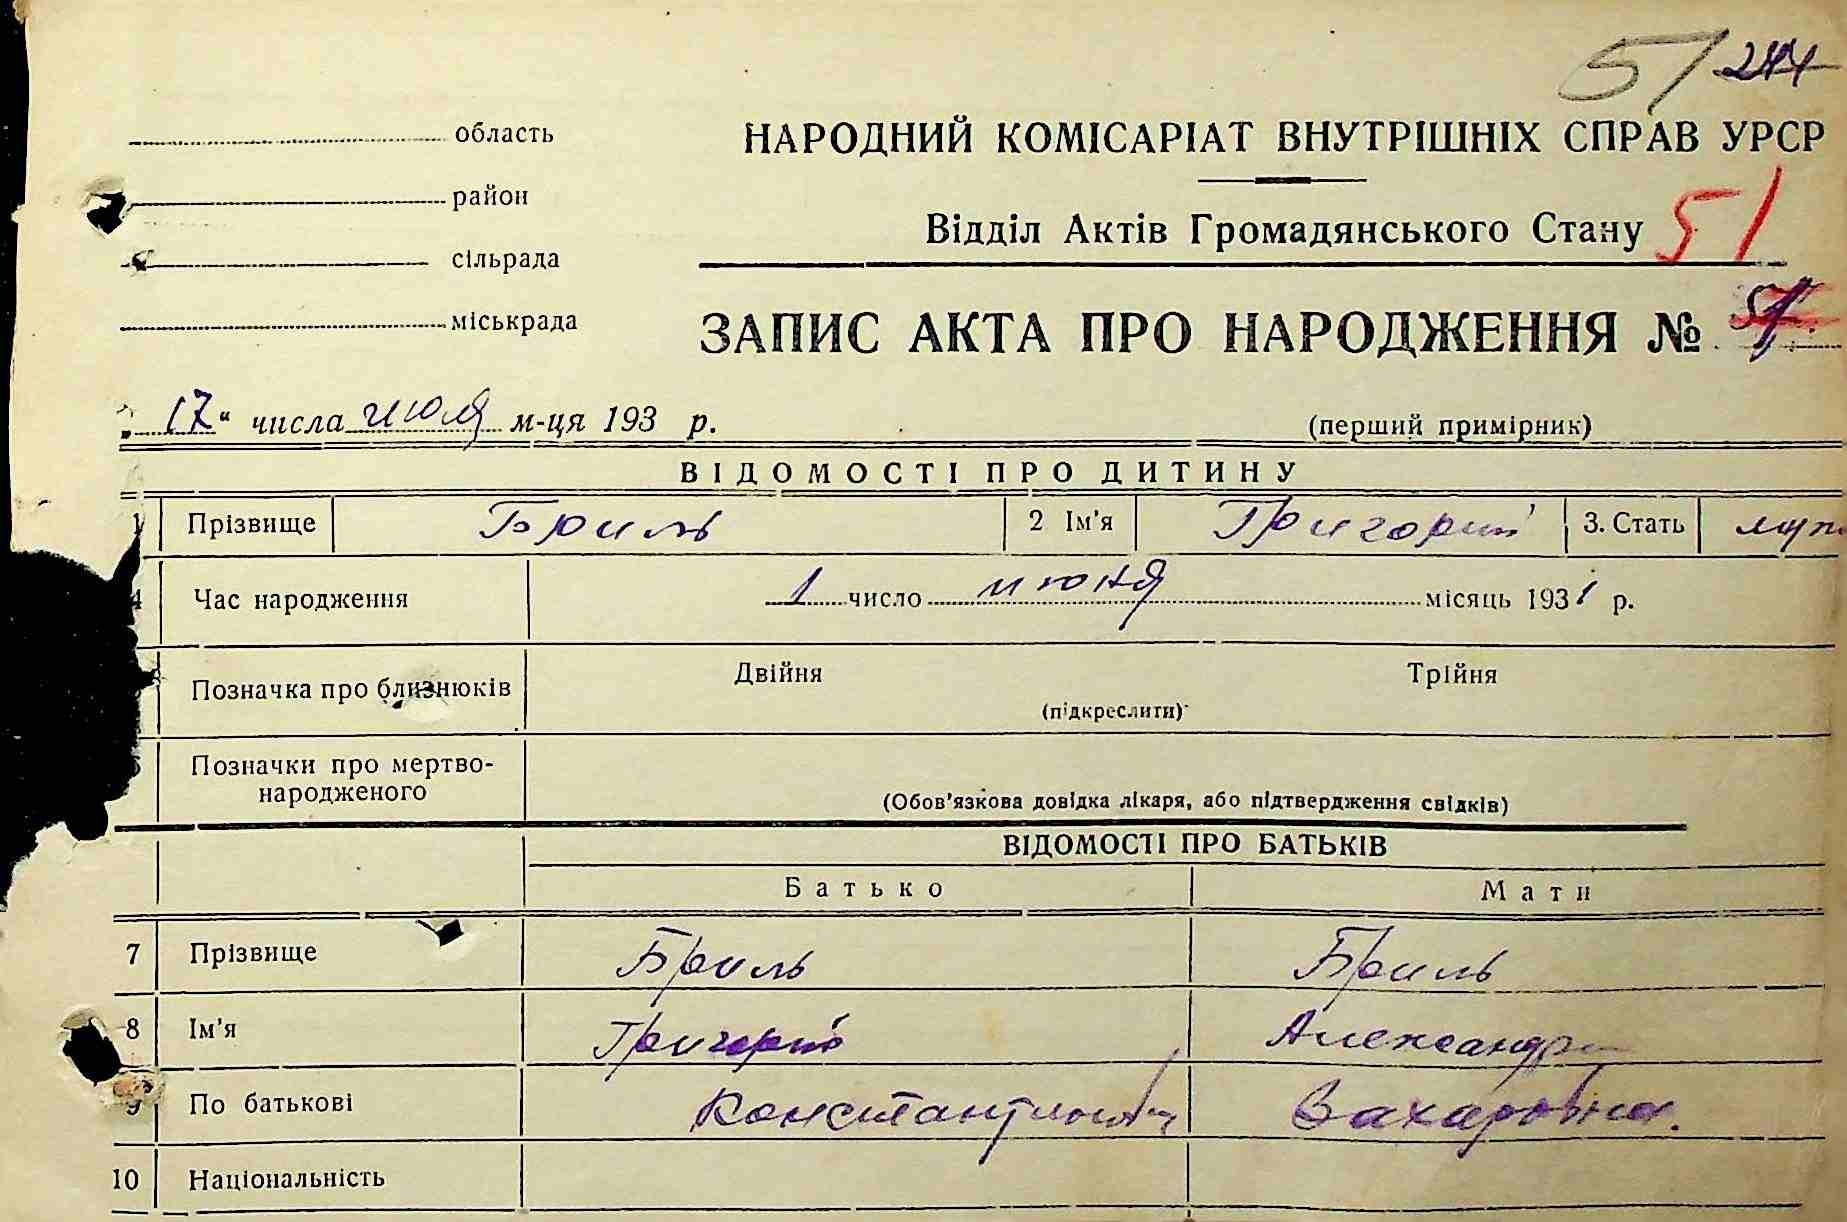 51 244
область
НАРОДНИЙ КОМІСАРІАТ ВНУТРІШНІХ СПРАВ УРСР
район
Відділ Актів Громадянського Стану 51
сільрада
міськрада
ЗАПИС АКТА ПРО НАРОДЖЕННЯ №
„17“ числа июля м-ця 193 р.
(перший примірник)
ВІДОМОСТІ ПРО ДИТИНУ
1 Прізвище Бриль 2 Ім'я Григорий 3. Стать муж
4 Час народження 1 число июня місяць 1931 р.
Позначка про близнюків Двійня Трійня
(підкреслити)
Позначки про мертво-
народженого
(Обов'язкова довідка лікаря, або підтвердження свідків)
ВІДОМОСТІ ПРО БАТЬКІВ
Батько Мати
7 Прізвище Бриль Бриль
8 Ім'я Григорий Александра
9 По батькові Константинович Захаровна.
10 Національність